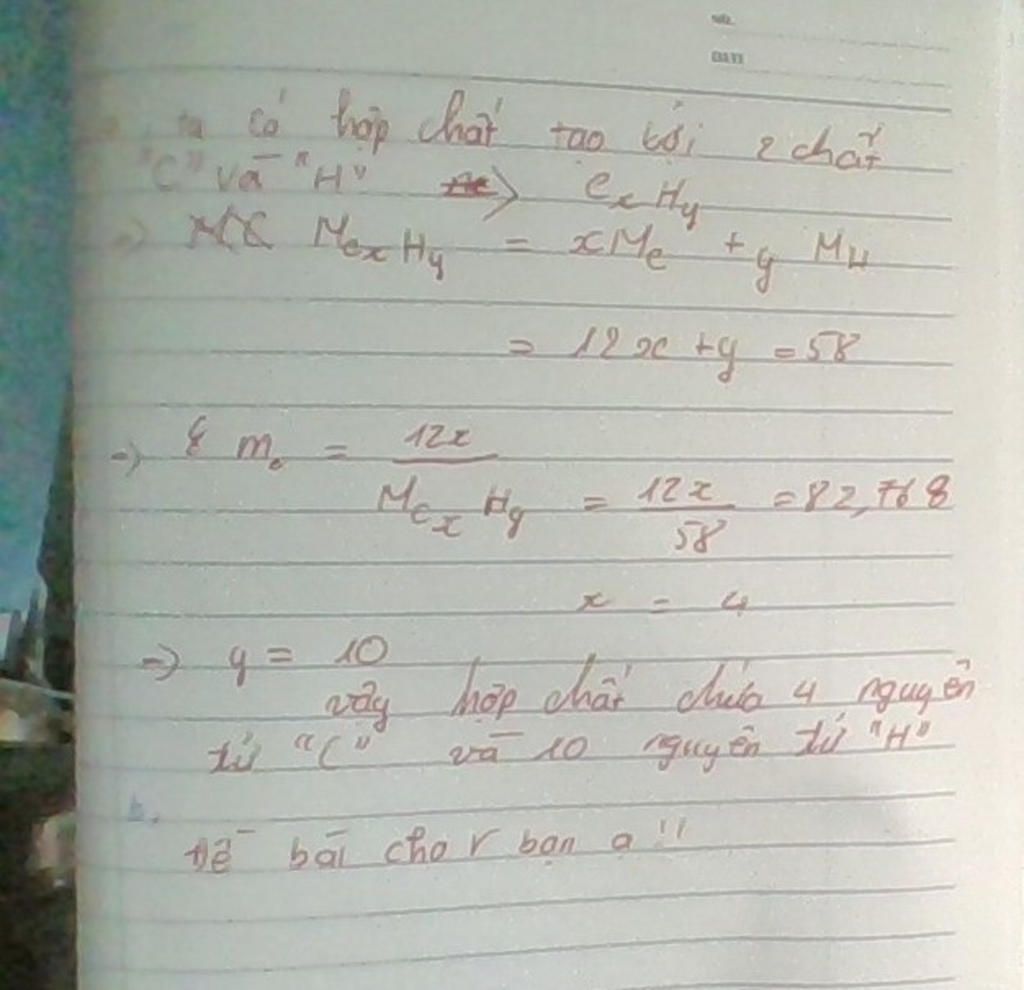 NO.
DATE
ta có hợp chất tạo bởi 2 chất
"C" và "H" => CxHy
=> MCxHy = xMC + yMH
= 12x + y = 58
=> % mc = 12x
MCxHy = 12x = 82,768
58
x = 4
=> y = 10
vậy hợp chất chứa 4 nguyên
tử "C" và 10 nguyên tử "H"
b.
Đề bài cho r bạn ạ !!